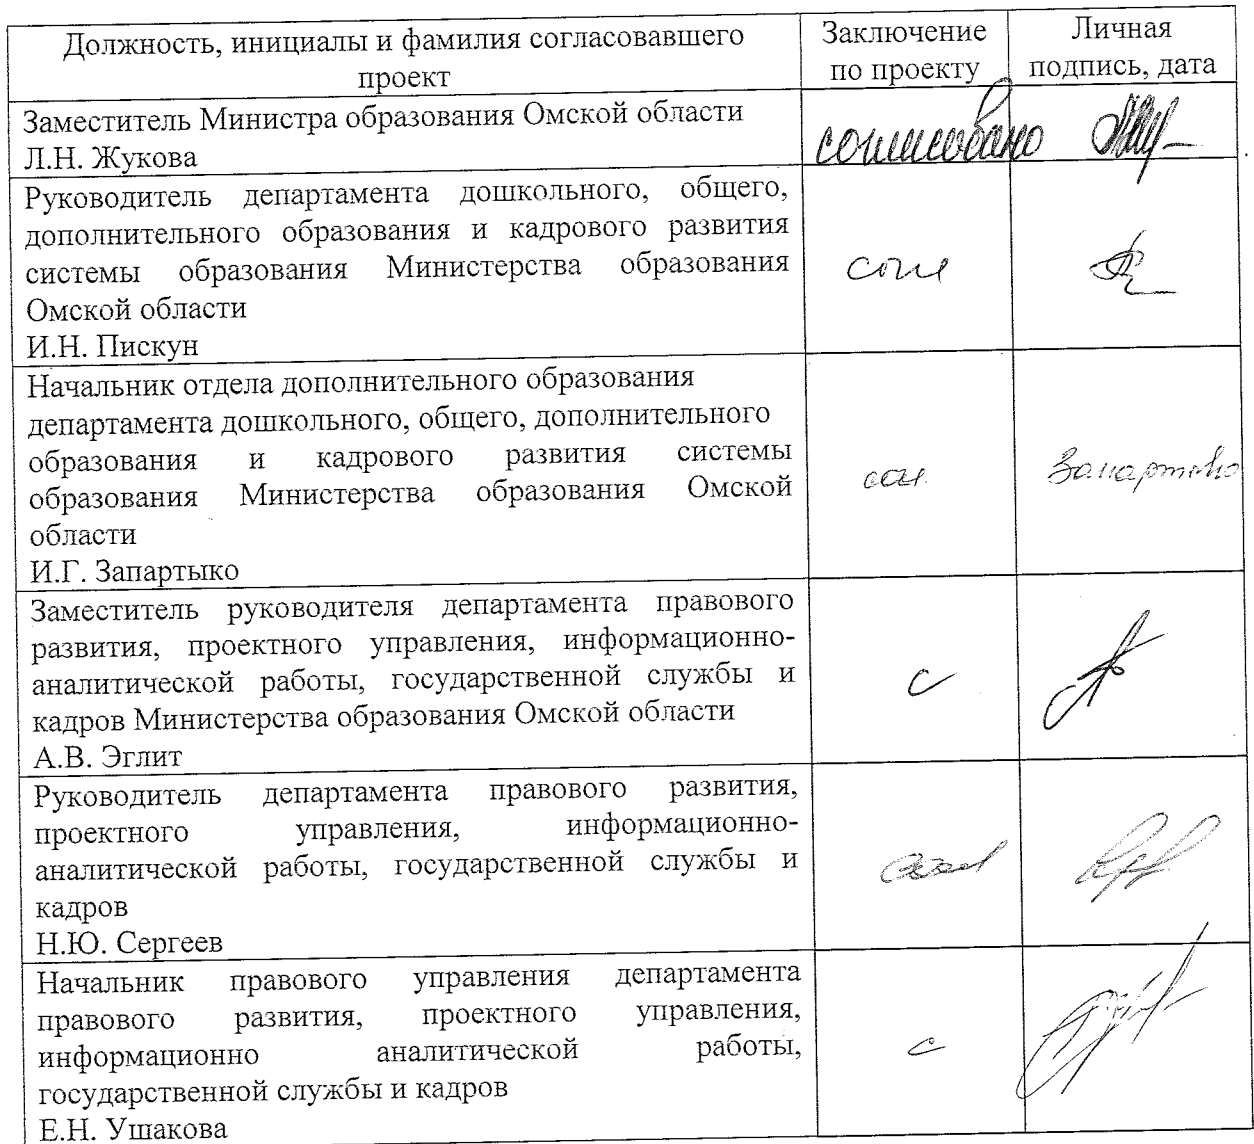 Должность, инициалы и фамилия согласовавшего
проект
Заключение
по проекту
Личная
подпись, дата
Заместитель Министра образования Омской области
Л.Н. Жукова
согласовано
Руководитель департамента дошкольного, общего,
дополнительного образования и кадрового развития
системы образования Министерства образования
Омской области
И.Н. Пискун
согл
Начальник отдела дополнительного образования
департамента дошкольного, общего, дополнительного
образования и кадрового развития системы
образования Министерства образования Омской
области
И.Г. Запартыко
сог.
Запартыко
Заместитель руководителя департамента правового
развития, проектного управления, информационно-
аналитической работы, государственной службы и
кадров Министерства образования Омской области
А.В. Эглит
с
Руководитель департамента правового развития,
проектного управления, информационно-
аналитической работы, государственной службы и
кадров
Н.Ю. Сергеев
Начальник правового управления департамента
правового развития, проектного управления,
информационно аналитической работы,
государственной службы и кадров
Е.Н. Ушакова
с